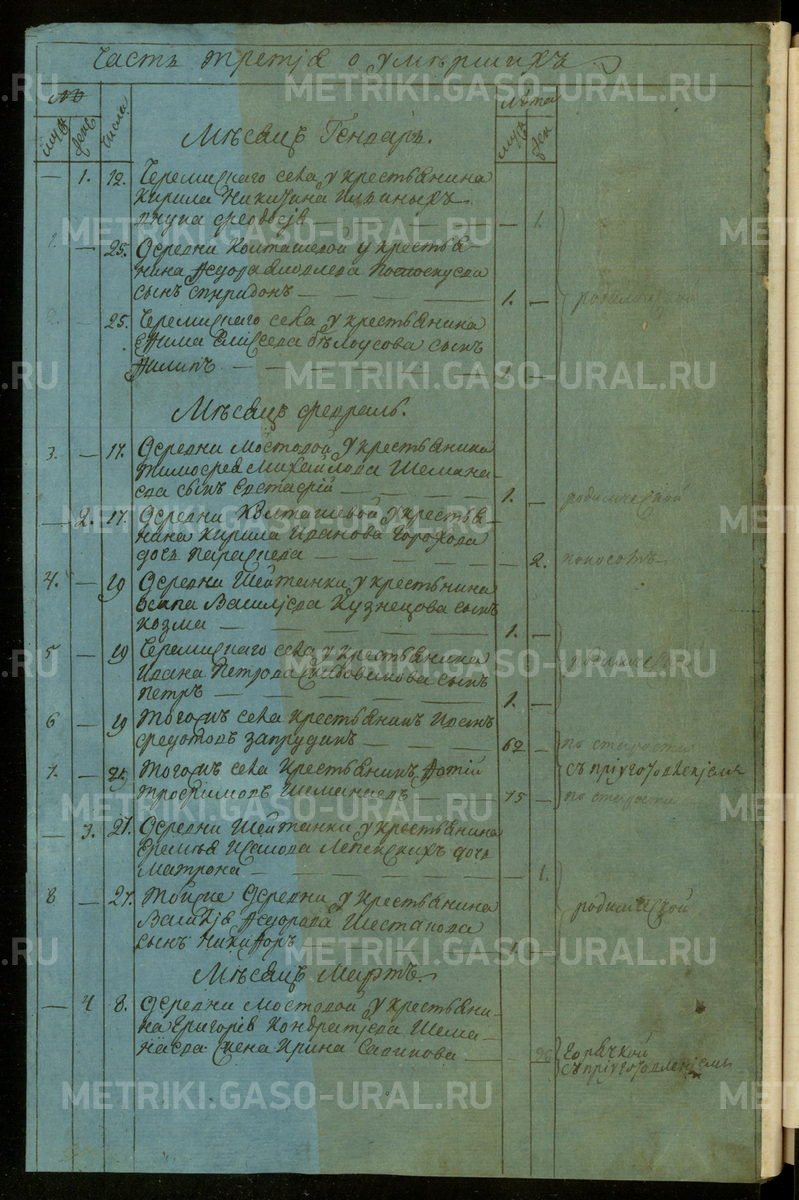 Часть третія о умершихъ
№ Лѣта
муж жен числа муж жен
Мѣсяцъ Генварь.
— 1. 12. Черемисского села у крестьянина
Кирила Никитина Ильиныхъ
внука Феодосія — 1.
— 25. Деревни Колташевой у крестья-
нина Федора Яковлева Пососкуева
сынъ Спиридонъ — 1. — родимческой
25. Черемисского села у крестьянина
Якима Елисеева Бѣлоусова сынъ
Филипъ — 1. —
Мѣсяцъ февраль.
3. — 17. Деревни Мостовой у крестьянина
Тимофея Михайлова Шемана-
ева сынъ Евстафій — 1. — родимческой
— 2. 17. Деревни Колташевой у крестья-
нина Кирила Иванова Горохова
дочь Параскева — 2. поносомъ
4. — 19 Деревни Шейтанки у крестьянина
Осипа Василіева Кузнецова сынъ
Козма — 1. —
5 — 19 Черемисского села у крестьянина
Ивана Петрова сынъ
Петръ — 1. — родимческой
6 — 19 Тогожъ села крестьянинъ Иванъ
Федотовъ Запрудинъ — 62 — по старости
7. — 25 Тогожъ села крестьянинъ Фотій
Трофимовъ Шеманаевъ — 75 — по старости
съ пріуготовленіемъ
— 3. 27. Деревни Шейтанки у крестьянина
Еремѣя Исакова Лепинскихъ дочь
Матрона — 1.
8 — 27. Тойже деревни у крестьянина
Василія Федорова Шестакова
сынъ Никифоръ — 1 — родимческой
Мѣсяцъ Мартъ.
— 4 8. Деревни Мостовой у крестьяни-
на Григорія Кондратіева Шема-
наева жена Ирина Савинова — 26 горячкой
съ пріуготовленіемъ
METRIKI.GASO-URAL.RU